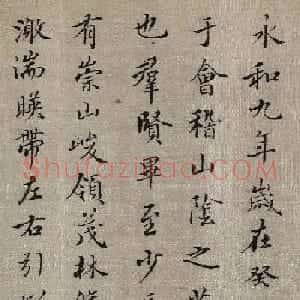 永和九年歲在癸
于會稽山陰之
也羣賢畢至少
有崇山峻領茂林
激湍暎帶左右引
Shufazidian.com